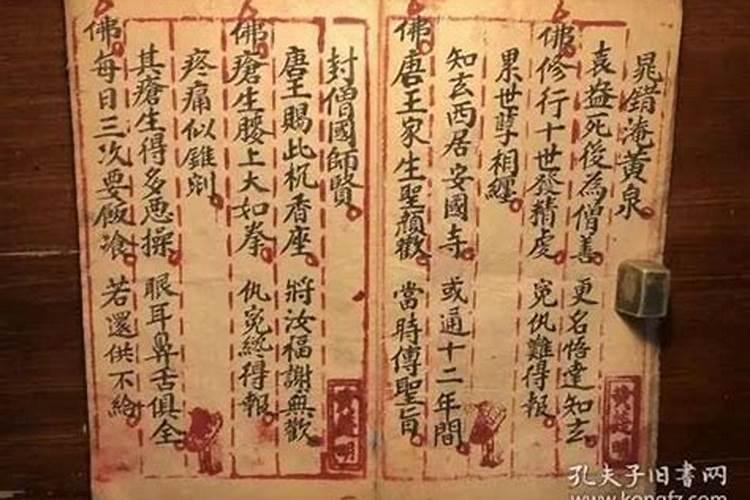 晁錯淹黄泉
袁益死後為僧善 更名悟達知玄
佛修行十世發精虔 冤仇難得報
累世孽相纏
知玄西居安國寺 或通十二年間
佛唐王家生聖顔歡 當時傳聖旨
封僧國師賢
唐王賜此杌香座 將汝福謝無歡
佛瘡生膝上大如拳 仇冤終得報
疼痛似錐剜
其瘡生得多悪操 眼耳鼻舌俱全
佛每日三次要飯飡 若還供不給
孔夫子旧书网